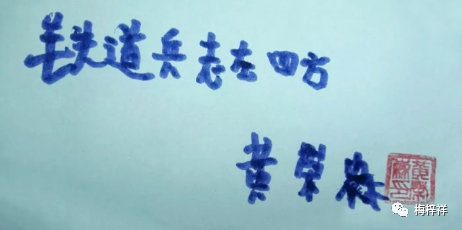 铁道兵志在四方
黄荣森
梅梓祥